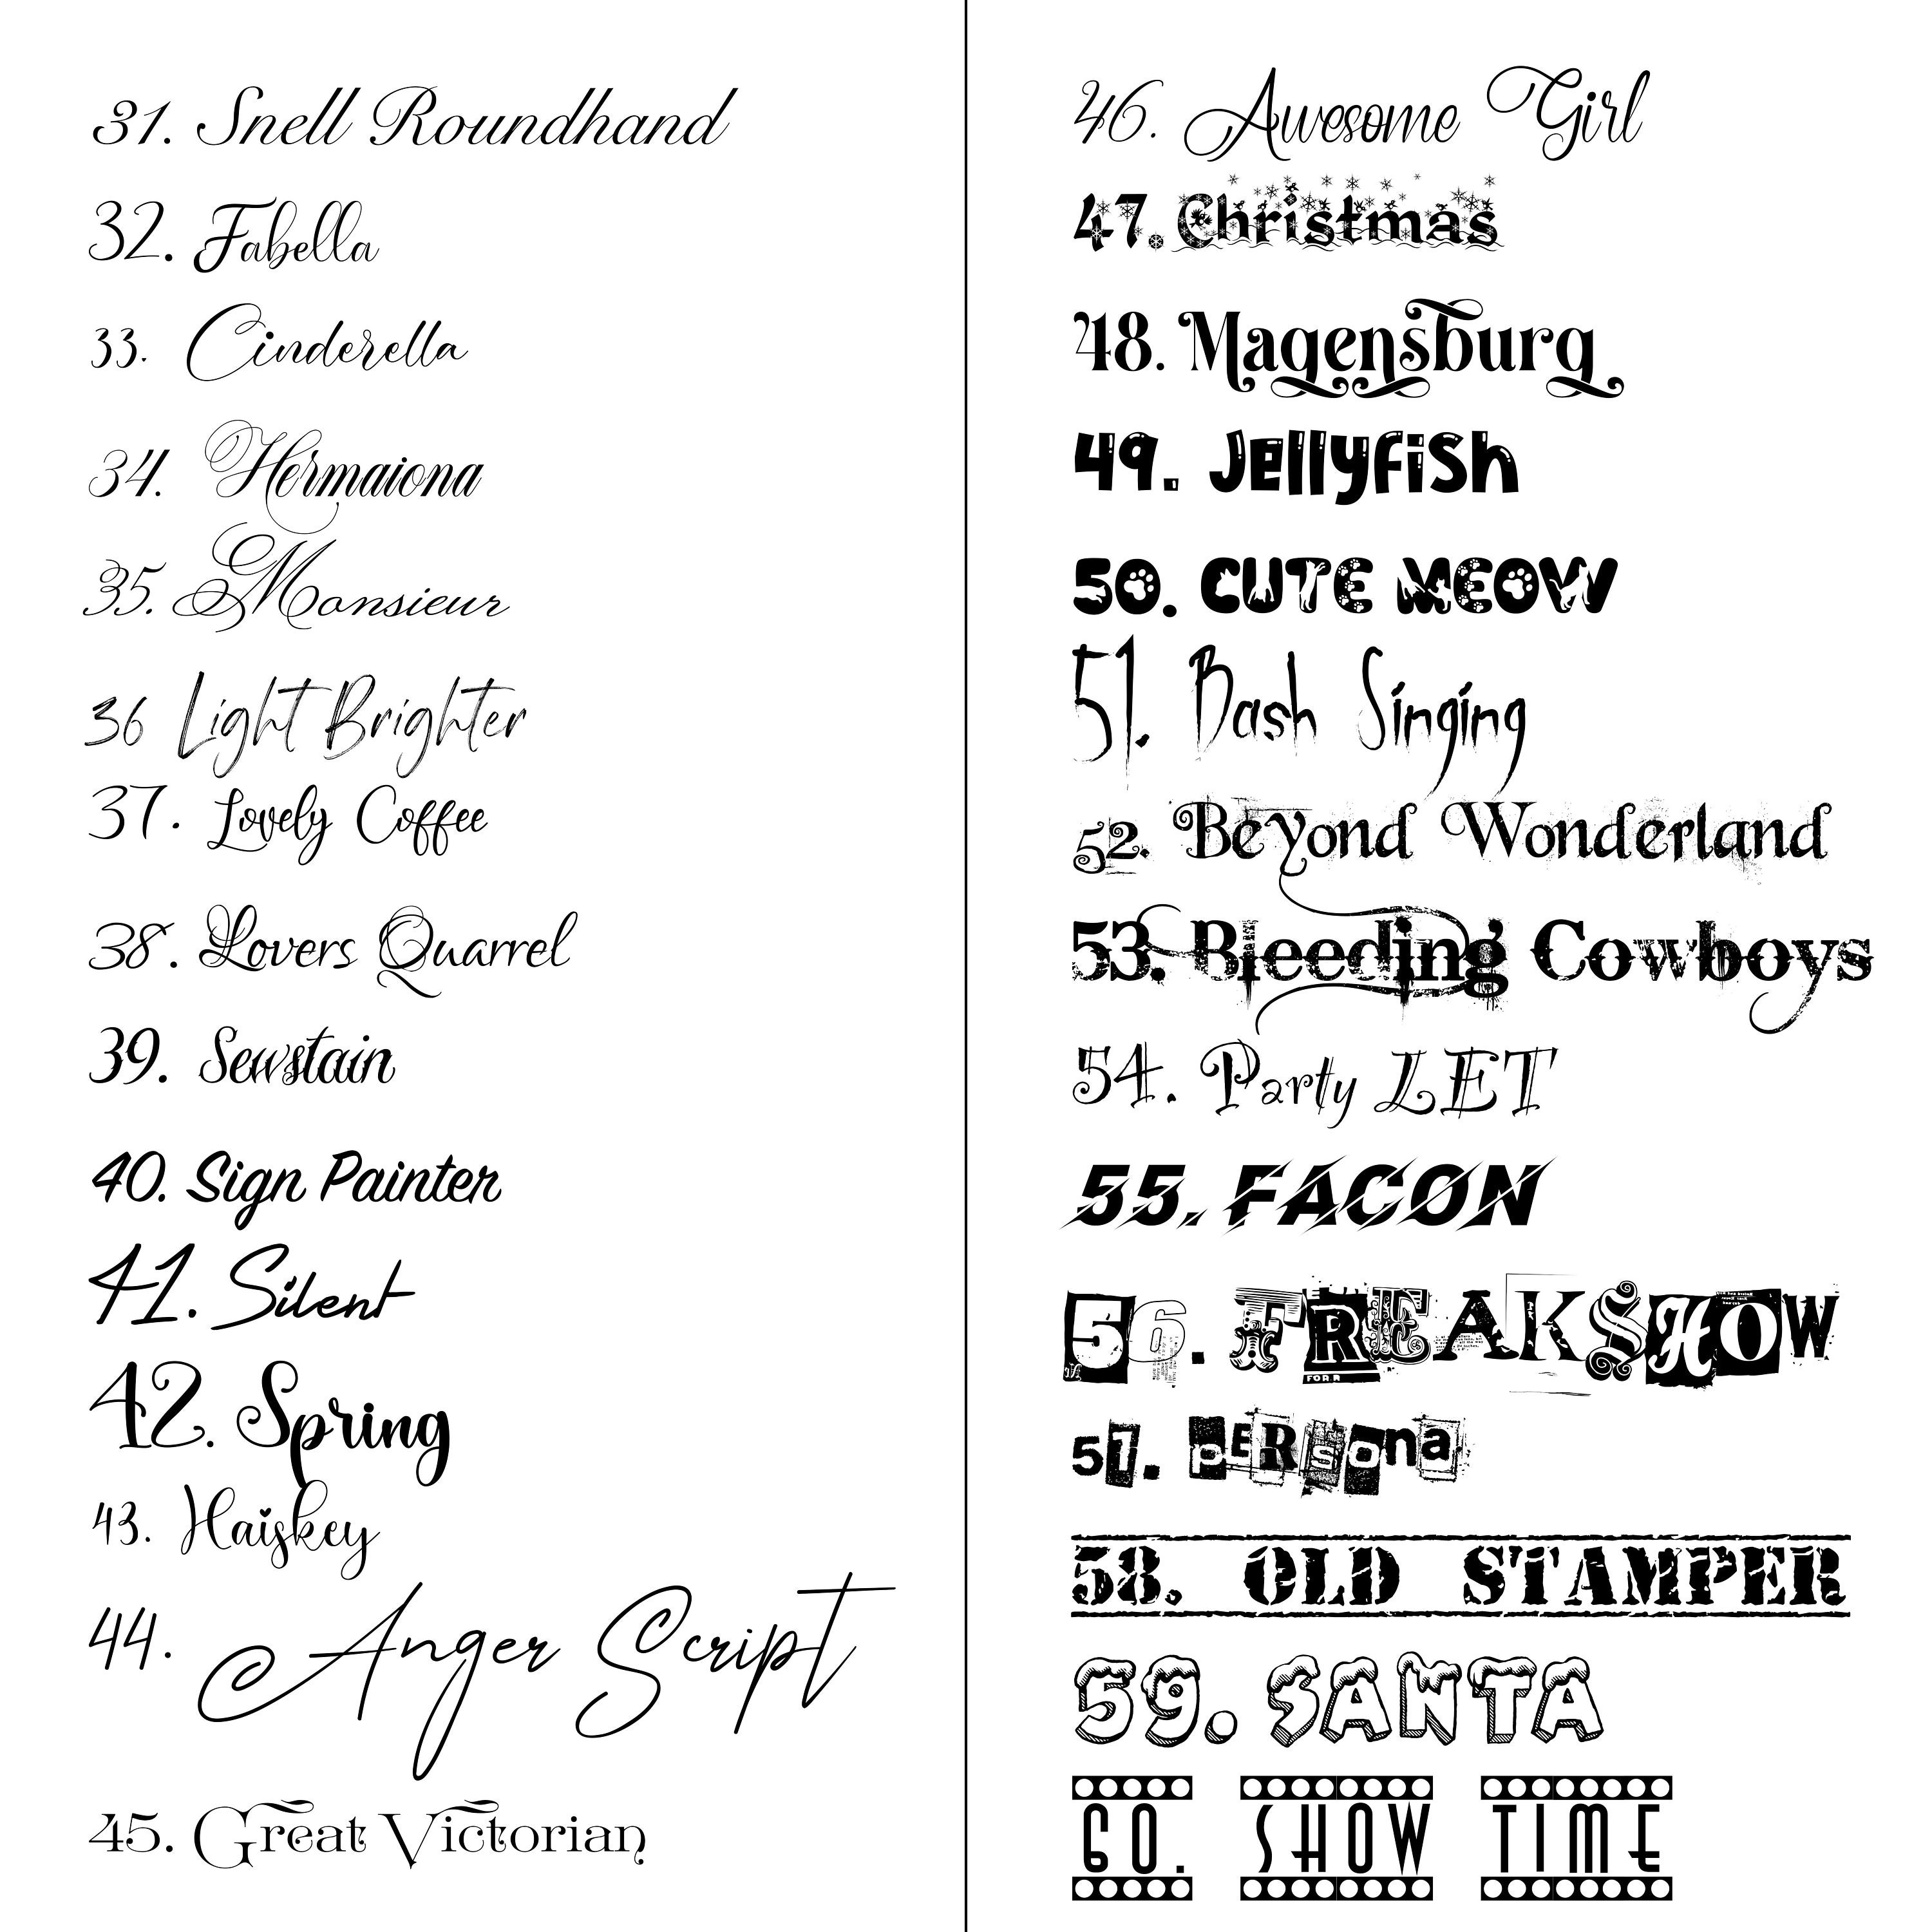 31. Snell Roundhand
32. Fabella
33. Cinderella
34. Hermaiona
35. Monsieur
36 Light Brighter
37. Lovely Coffee
38. Lovers Quarrel
39. Sewstain
40. Sign Painter
41. Silent
42. Spring
43. Haiskey
44. Anger Script
45. Great Victorian
46. Awesome Girl
47. Christmas
48. Magensburg
49. Jellyfish
50. CUTE MEOW
51. Bash Singing
52. Beyond Wonderland
53. Bleeding Cowboys
54. Party LET
55. FACON
56. FREAKSHOW
57. pERsona
58. OLD STAMPER
59. SANTA
60. SHOW TIME